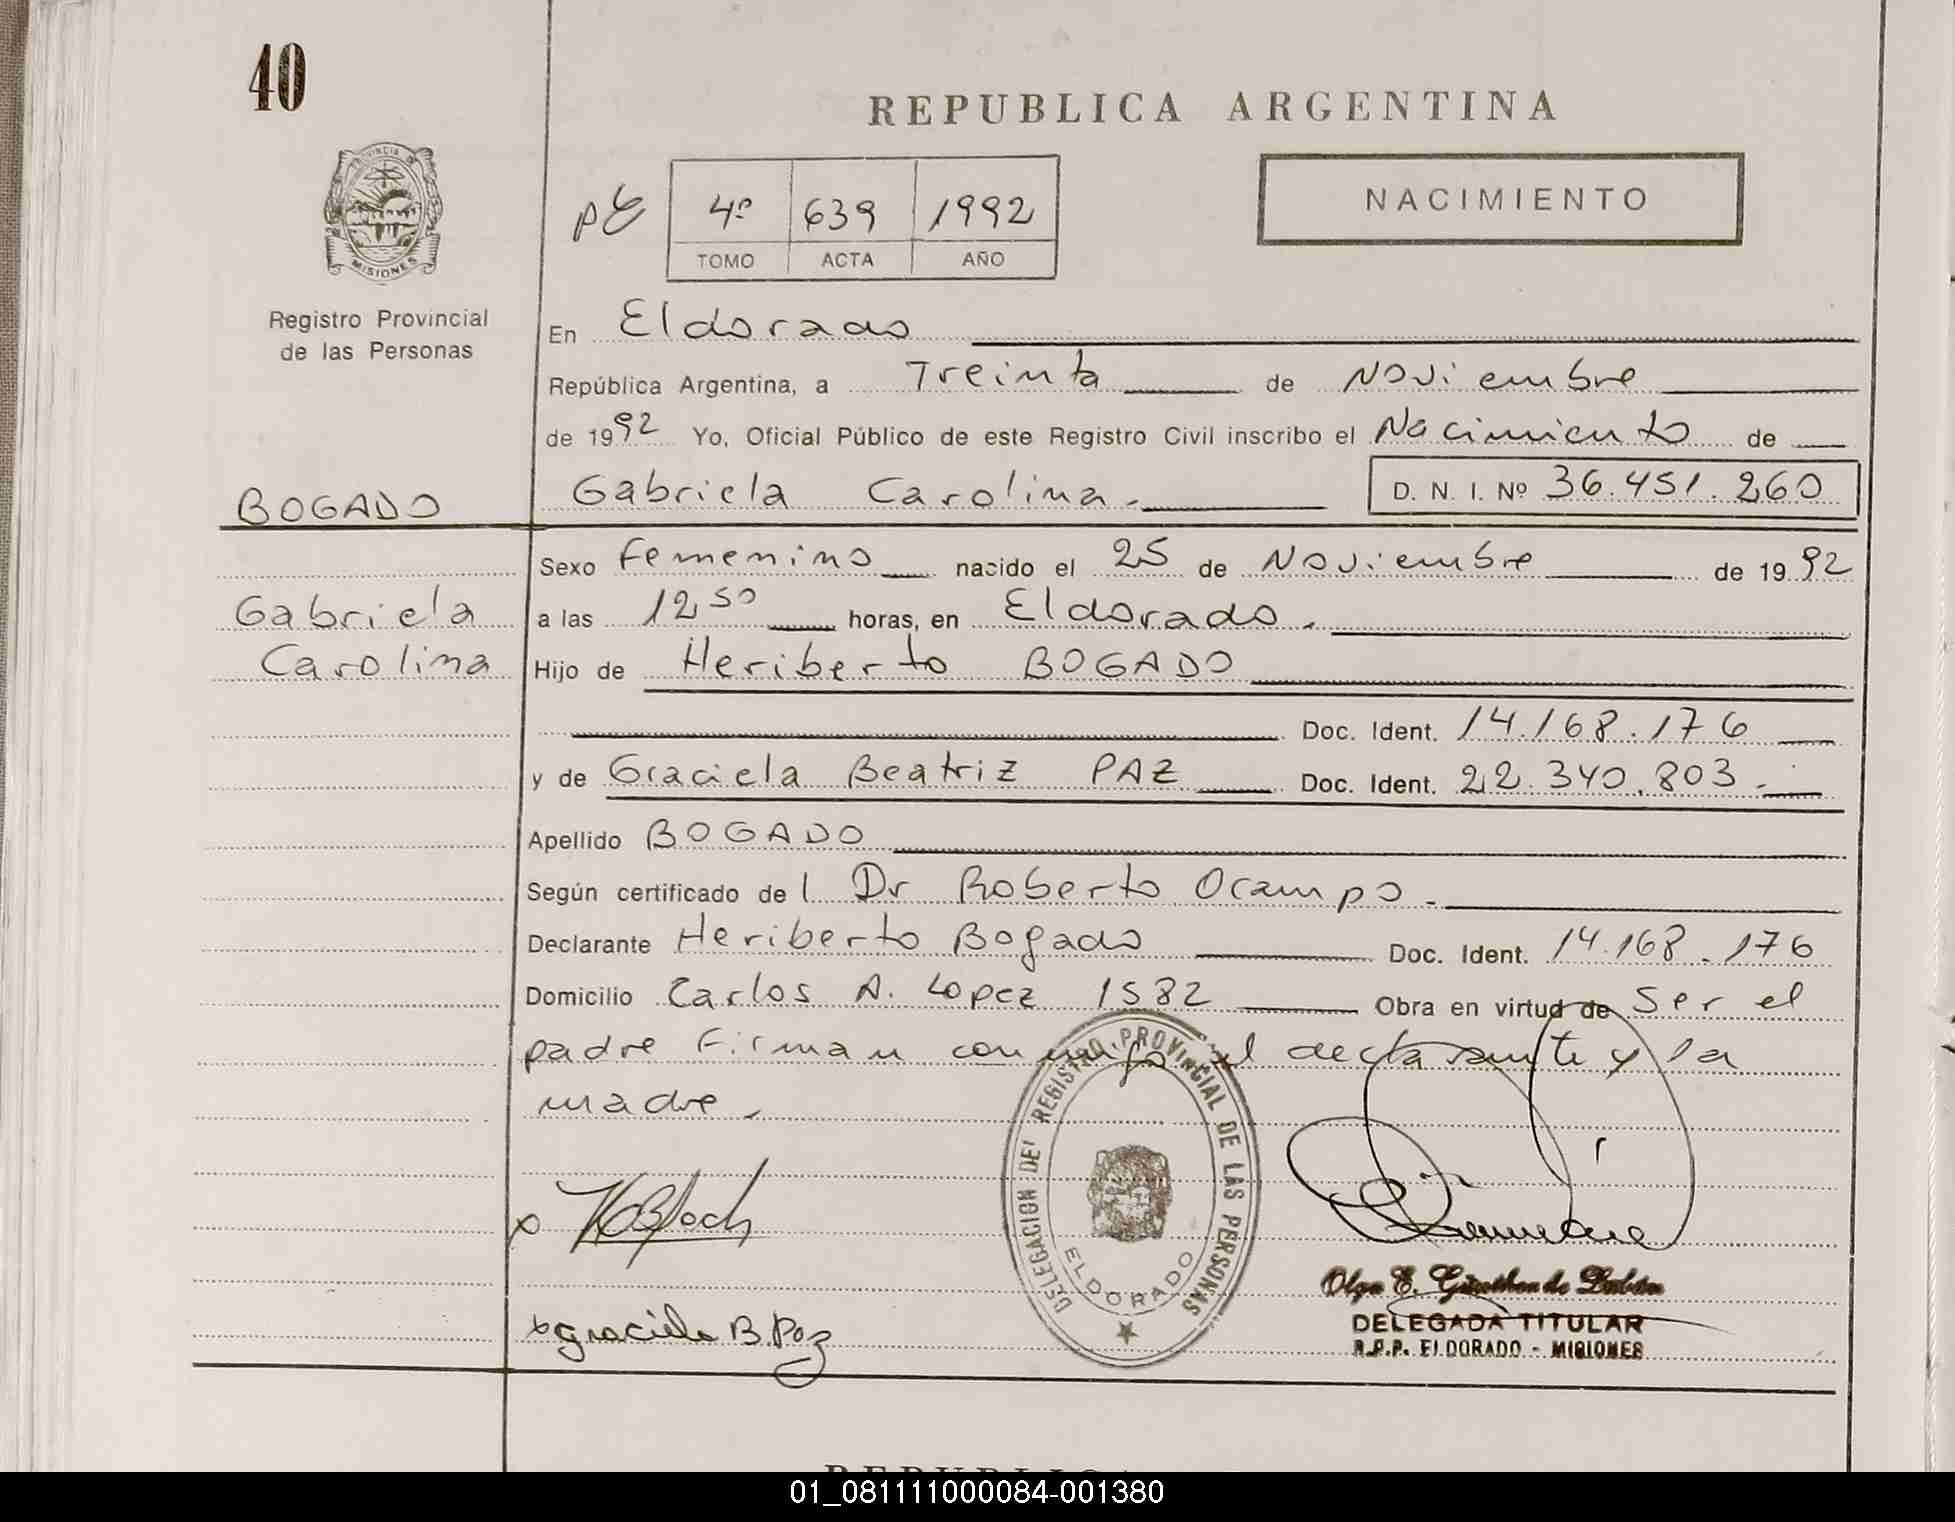 40
REPUBLICA ARGENTINA
PROVINCIA DE
MISIONES
Registro Provincial
de las Personas
NACIMIENTO
4º 639 1992
TOMO ACTA AÑO
En Eldorado
República Argentina, a Treinta de Noviembre
de 1992 Yo, Oficial Público de este Registro Civil inscribo el Nacimiento de
BOGADO
Gabriela Carolina.
D. N. I. Nº 36.451.260
Gabriela
Carolina
Sexo Femenino nacido el 25 de Noviembre de 1992
a las 12 50 horas, en Eldorado.
Hijo de Heriberto BOGADO
Doc. Ident. 14.168.176
y de Graciela Beatriz PAZ Doc. Ident. 22.340.803.
Apellido BOGADO
Según certificado de l Dr Roberto Ocampo.
Declarante Heriberto Bogado Doc. Ident. 14.168.176
Domicilio Carlos A. Lopez 1582 Obra en virtud de Ser el
padre Firman conmigo el declarante y la
madre.
DELEGACION DE REGISTRO PROVINCIAL DE LAS PERSONAS
ELDORADO
x
x Graciela B. Paz
Olga E. Günther de
DELEGADA TITULAR
R.P.P. ELDORADO - MISIONES
01_081111000084-001380